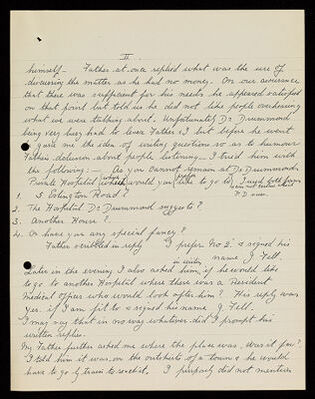 II
himself - Father at once replied what was the use of
discussing the matter as he had no money. On our assurance
that there was sufficient for his needs he appeared satisfied
on that point but told us he did not like people overhearing
what we were talking about. Unfortunately Dr Drummond
being very busy had to leave Father & I but before he went
gave me the idea of writing questions so as to humour
Father's delusion about people listening - I tried him with
the following: - As you cannot remain at Dr Drummond's
Private Hospital which would you like to go to
1. 5 Eslington Road?
2. The Hospital Dr Drummond suggests?
3. Another House?
4. Or have you any special fancy?
Father scribbled in reply I prefer No 2 & signed his
name J Fell.
Later in the evening I also asked him, in writing, if he would like
to go to another Hospital where there was a Resident
Medical officer who would look after him? His reply was
Yes, if I am fit to & signed his name J Fell.
I may say that in no way whatever did I prompt his
written replies.
My Father further asked me where the place was, was it far?
I told him it was on the outskirts of a town & he would
have to go by train to reach it. I purposely did not mention